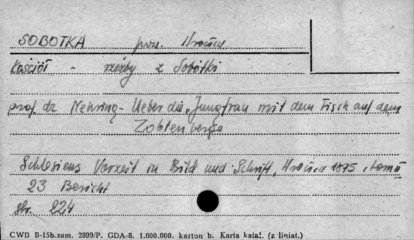 SOBOTKA pow. Wrocław
Kościół - rzeźby z Sobótki
prof. dr Nehring - Ueber die "Jungfrau mit dem Fisch auf dem
Zobtenberge
Schlesiens Vorzeit in Bild und Schrift, 1875, tom
23 Bericht
str. 224
CWD B-15b.zam. 2899/P. GDA-8. 1.000.000. karton b. Karta katal. (z liniat.)